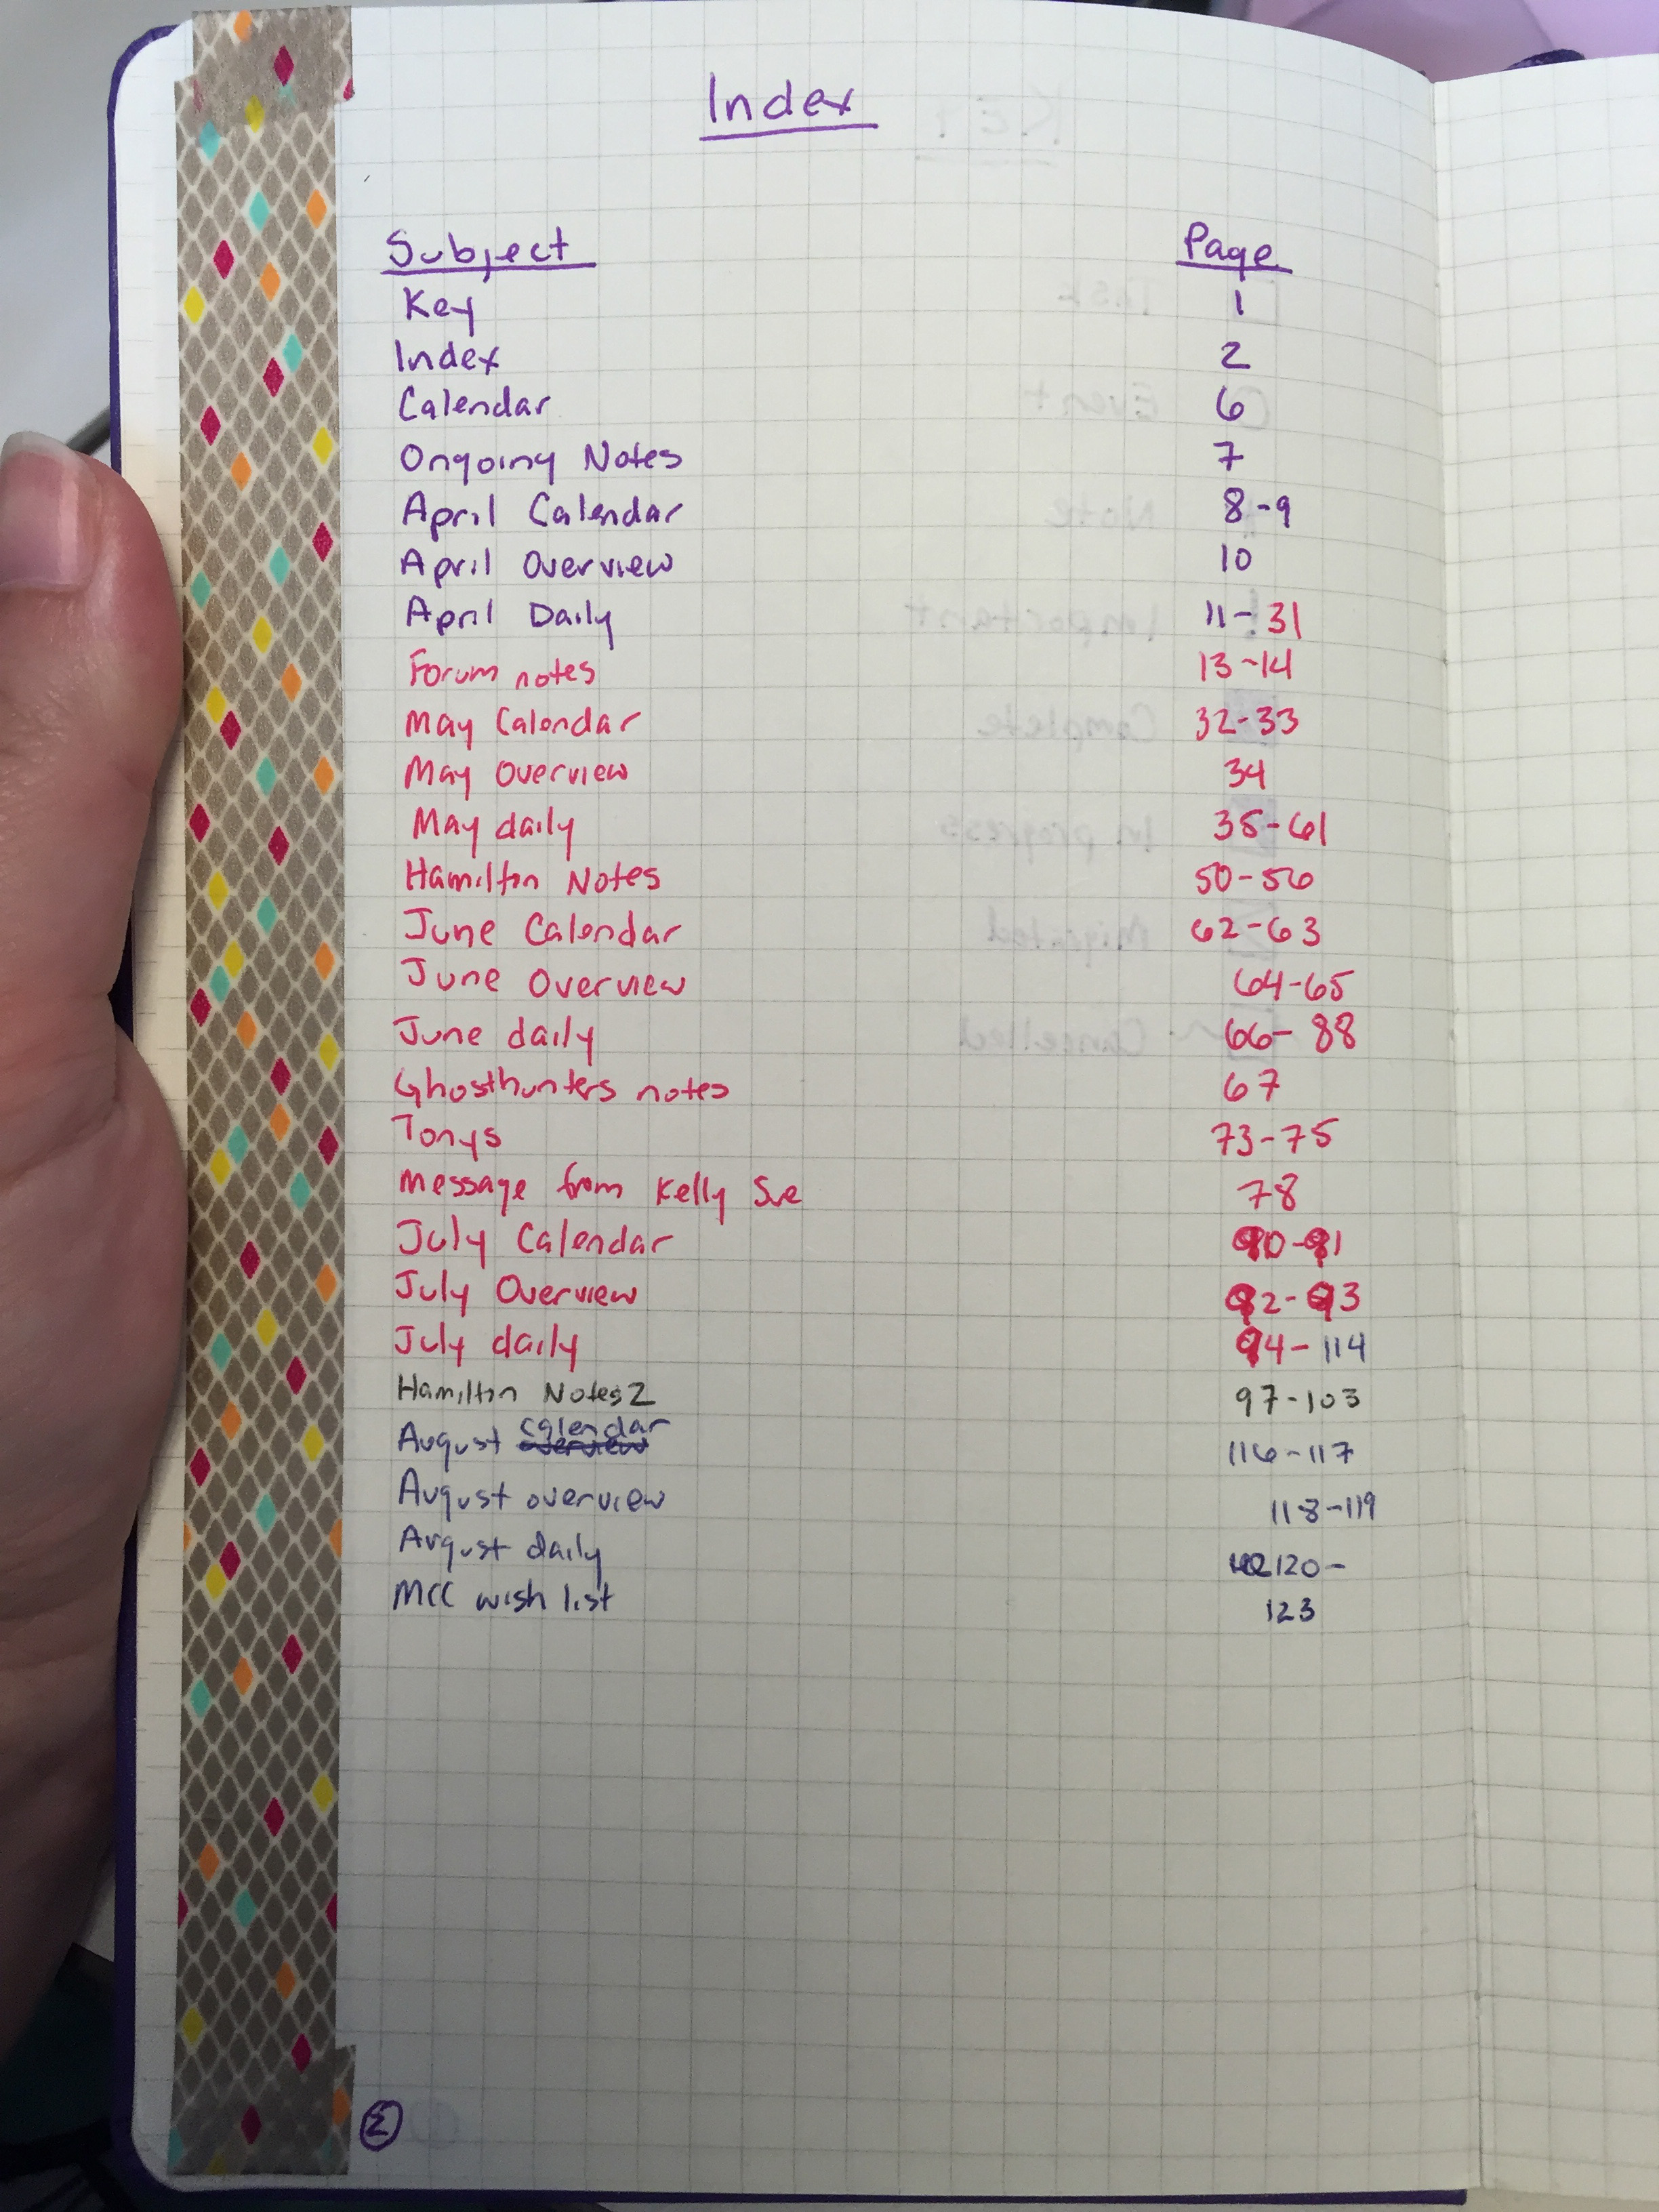 Index
Subject Page
Key 1
Index 2
Calendar 6
Ongoing Notes 7
April Calendar 8-9
April Overview 10
April Daily 11-31
Forum notes 13-14
May Calendar 32-33
May Overview 34
May daily 35-61
Hamilton Notes 50-56
June Calendar 62-63
June Overview 64-65
June daily 66-88
Ghosthunters notes 67
Tonys 73-75
Message from Kelly Sue 78
July Calendar 90-91
July Overview 92-93
July daily 94-114
Hamilton Notes 2 97-103
August calendar overview 116-117
August overview 118-119
August daily 120-
MCC wish list 123
2
KEY
Task
Event
Note
Important
Complete
In progress
Migrated
Cancelled